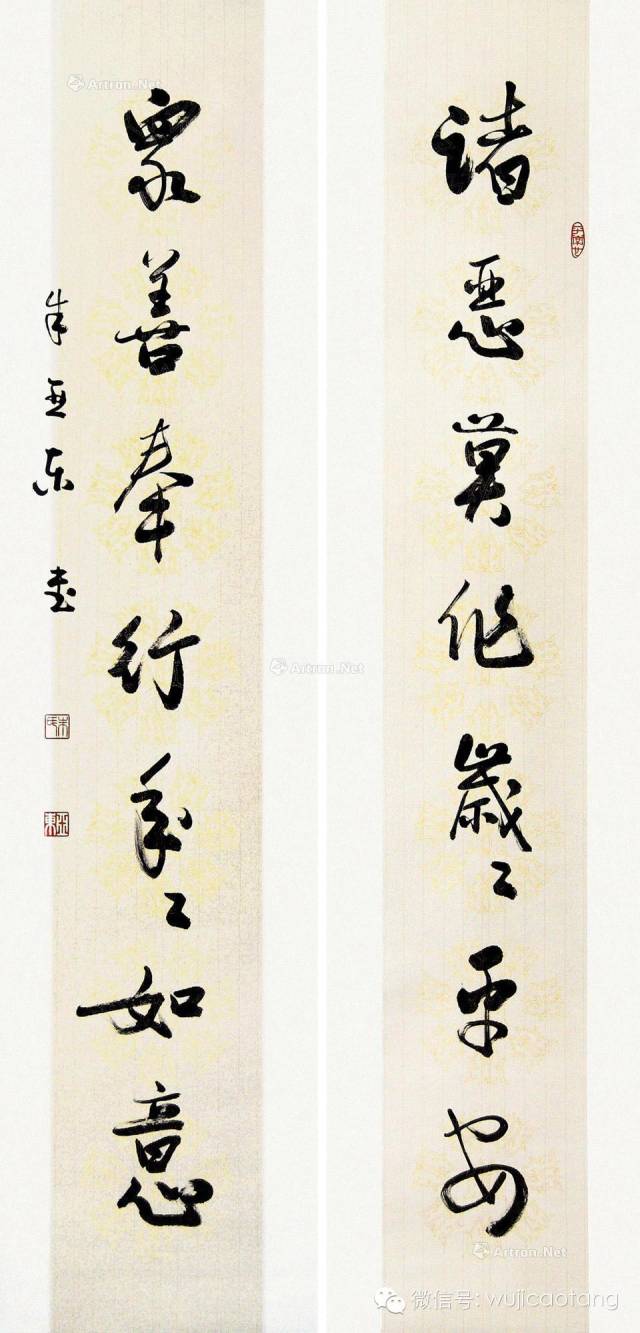 諸惡莫作歲〻平安
眾善奉行年〻如意
朱亞東書
朱氏
亞東
Artron.Net
Artron.Net
Artron.Net
微信号: wujicaotang